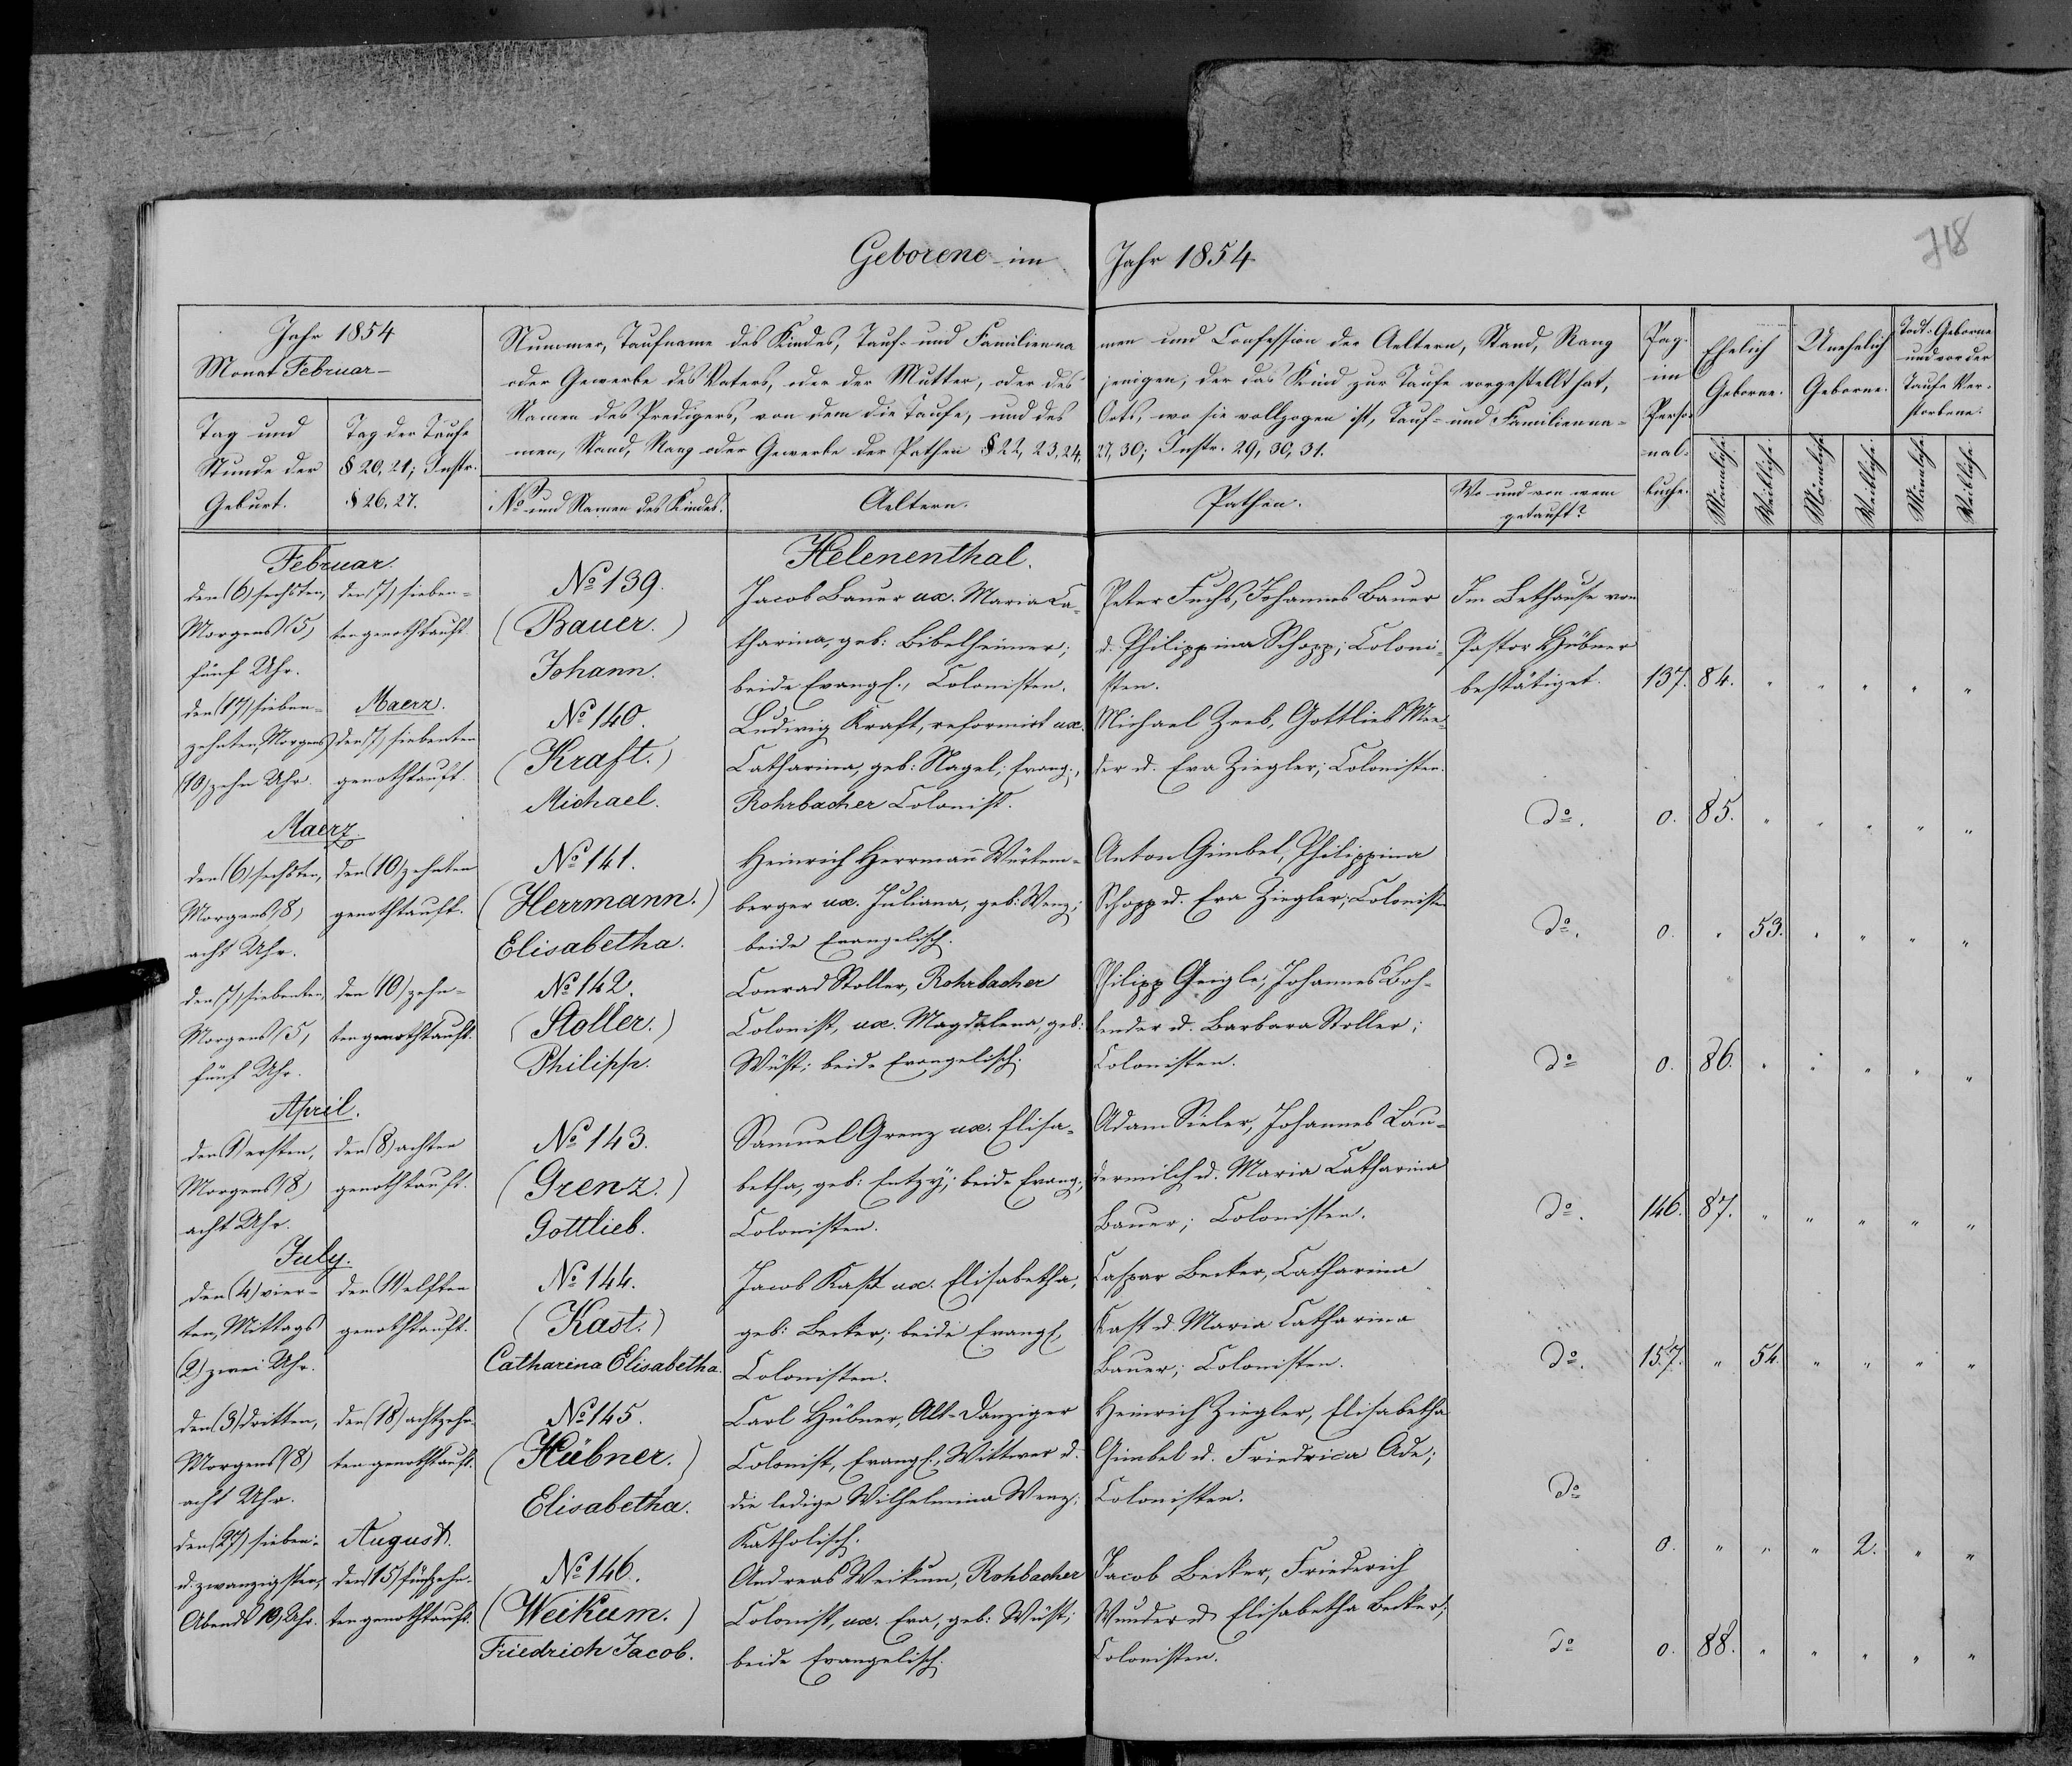 Geborene im Jahr 1854
718
Jahr 1854
Monat Februar
Tag und
Stunde der
Geburt.
Tag der Taufe
§ 20, 21; Instr.
§ 26, 27.
Nummer, Taufname des Kindes, Tauf- und Familienna men und Confession der Aeltern, Stand, Rang
oder Gewerbe des Vaters, oder der Mutter, oder des jenigen, der das Kind zur Taufe vorgestellt hat,
Namen des Predigers, von dem die Taufe, und des Orts, wo sie vollzogen ist, Tauf- und Familienna-
men, Stand, Rang oder Gewerbe der Pathen § 22, 23, 24, 27, 30; Instr. 29, 30, 31.
No und Namen des Kindes.
Aeltern.
Pathen.
Wo und von wem
getauft?
Pag.
im
Perso-
nal-
buche.
Ehelich
Geborne.
Unehelich
Geborne.
Todt-Geborne
und vor der
Taufe Ver-
storbene.
Männliche.
Weibliche.
Männliche.
Weibliche.
Männliche.
Weibliche.
Helenenthal.
Februar.
den (6) sechsten,
Morgens (5)
fünf Uhr.
den (7) sieben-
ten genothtauft.
No 139.
(Bauer.)
Johann.
Jacob Bauer ux. Maria Ca-
tharina, geb: Bibelheimer;
beide Evangl., Colonisten.
Peter Fuchs, Johannes Bauer
u. Philippina Schopp; Coloni-
sten.
Im Bethause von
Pastor Hübner
bestätiget.
137. 84. " " " " "
den (17) sieben-
zehnten, Morgens
(10) zehn Uhr.
Maerz.
den (7) siebenten
genothtauft.
No 140.
(Kraft.)
Michael.
Ludwig Kraft, reformirt ux.
Catharina, geb: Nagel; Evang.,
Rohrbacher Colonist.
Michael Zeeb, Gottlieb Mee-
der u. Eva Ziegler; Colonisten.
do. 0. 85. " " " " "
Maerz.
den (6) sechsten,
Morgens (8)
acht Uhr.
den (10) zehnten
genothtauft.
No 141.
(Herrmann.)
Elisabetha.
Heinrich Herrmann Würtem-
berger ux. Juliana, geb: Wenz;
beide Evangelisch.
Anton Gimbel, Philippina
Schopp u. Eva Ziegler; Colonisten
do. 0. " 53. " " " "
den (7) siebenten,
Morgens (5)
fünf Uhr.
den (10) zehn-
ten genothtauft.
No 142.
(Stoller.)
Philipp.
Conrad Stoller, Rohrbacher
Colonist, ux. Magdalena, geb:
Wüst; beide Evangelisch.
Philipp Geigle, Johannes Boh-
lender u. Barbara Stoller;
Colonisten.
do 0. 86. " " " " "
April.
den (1) ersten,
Morgens (8)
acht Uhr.
den (8) achten
genothtauft.
No 143.
(Grenz.)
Gottlieb.
Samuel Grenz ux. Elisa-
betha, geb: Entzy; beide Evang.,
Colonisten.
Adam Sieler, Johannes Lau-
dermilch u. Maria Catharina
Bauer; Colonisten.
do. 146. 87. " " " " "
July.
den (4) vier-
ten, Mittags
(2) zwei Uhr.
den (11) elften
genothtauft.
No 144.
(Kast.)
Catharina Elisabetha.
Jacob Kast ux. Elisabetha,
geb: Becker; beide Evangl,
Colonisten.
Caspar Becker, Catharina
Kast u. Maria Catharina
Bauer; Colonisten.
do. 157. " 54. " " " "
den (3) dritten,
Morgens (8)
acht Uhr.
den (18) achtzehn-
ten genothtauft.
No 145.
(Hübner.)
Elisabetha.
Carl Hübner, Alt-Danziger
Colonist, Evangl., Wittwer u.
die ledige Wilhelmina Wenz;
Katholisch.
Heinrich Ziegler, Elisabetha
Gimbel u. Friedrica Ade;
Colonisten.
do
0. " " " 2. " "
den (27) sieben-
u. zwanzigsten,
Abends 10, Uhr.
August.
den (15) fünfzehn-
ten genothtauft.
No 146.
(Weikum.)
Friedrich Jacob.
Andreas Weikum, Rohbacher
Colonist, ux. Eva, geb: Wüst;
beide Evangelisch.
Jacob Becker, Friederich
Wunder u. Elisabetha Becker;
Colonisten.
do 0. 88. " " " " "